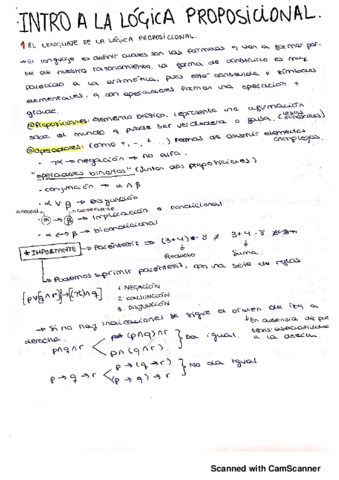 INTRO A LA LÓGICA PROPOSICIONAL.
1 EL LENGUAJE DE LA LÓGICA PROPOSICIONAL.
→ El lenguaje es definir cuales son las fórmulas q van a formar par-
te de nuestro razonamiento. La forma de construirlo es muy
parecido a la aritmética, pues esto construido x símbolos
elementales, q con operadores forman una operación +
grande.
Proposiciones: elemento básico, representa una afirmación
sobre el mundo q puede ser verdadera o falsa. (minúsculas)
Operadores: (como +, -, ...) formas de construir elementos
complejos.
¬α → negación → no alfa.
"operadores binarios" (juntan dos proposiciones)
· conjunción → α ∧ β
· α ∨ β → Disyunción
· α → β → Implicación o condicional
· α ↔ β → bicondicional
* IMPORTANTE → Paréntesis ⇒ (3+4)·8 ≠ 3+4·8
Producto Suma
→ Podemos suprimir paréntesis, con una serie de reglas
[p∨(q∧r)]→[(¬p)∧q]
1 NEGACIÓN
2 CONJUNCIÓN
3 DISYUNCIÓN
→ Si no hay indicaciones se sigue el orden de izq a
derecha.
↳ En ausencia de par
tesis asociatividad
a la derecha.
p∧q∧r < (p∧q)∧r
p∧(q∧r) } Da igual.
p→q→r < p→(q→r)
(p→q)→r } No da igual
Scanned with CamScanner